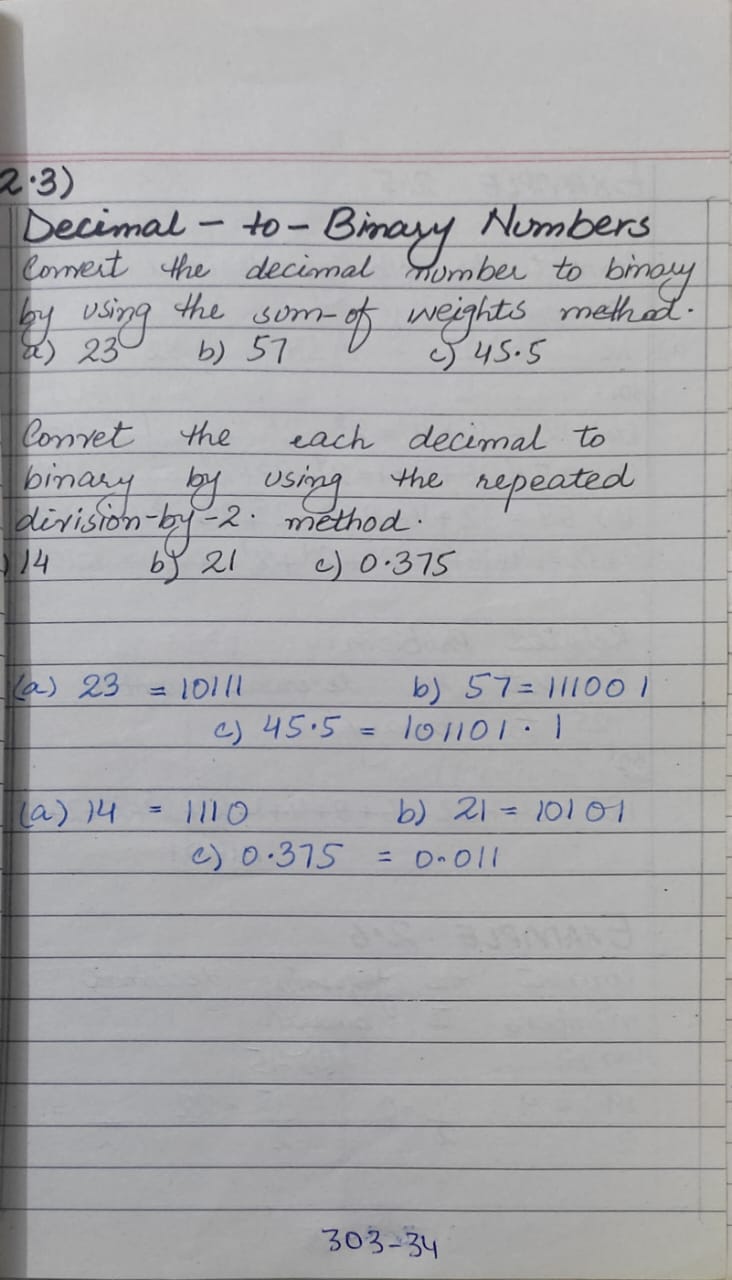 2.3)
Decimal - to - Binary Numbers
Convert the decimal number to binary
by using the sum-of weights method.
a) 23 b) 57 c) 45.5
Convet the each decimal to
binary by using the repeated
division-by-2. method.
) 14 b) 21 c) 0.375
(a) 23 = 10111 b) 57 = 111001
c) 45.5 = 101101.1
(a) 14 = 1110 b) 21 = 10101
c) 0.375 = 0.011
303-34